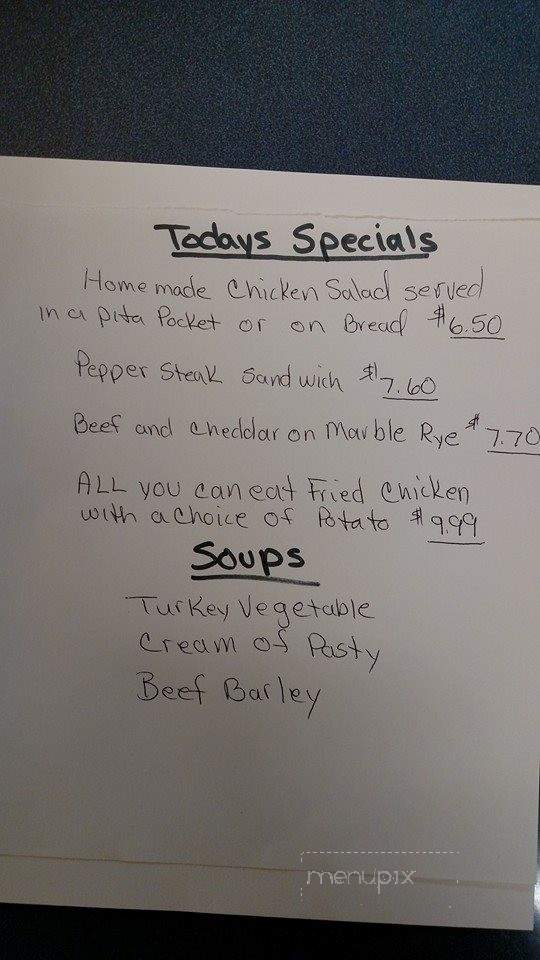 Todays Specials
Home made Chicken Salad served
in a pita Pocket or on Bread $6.50
Pepper Steak Sandwich $7.60
Beef and cheddar on Marble Rye $7.70
ALL you can eat Fried Chicken
with a choice of Potato $9.99
Soups
Turkey Vegetable
Cream of Pasty
Beef Barley
menupix